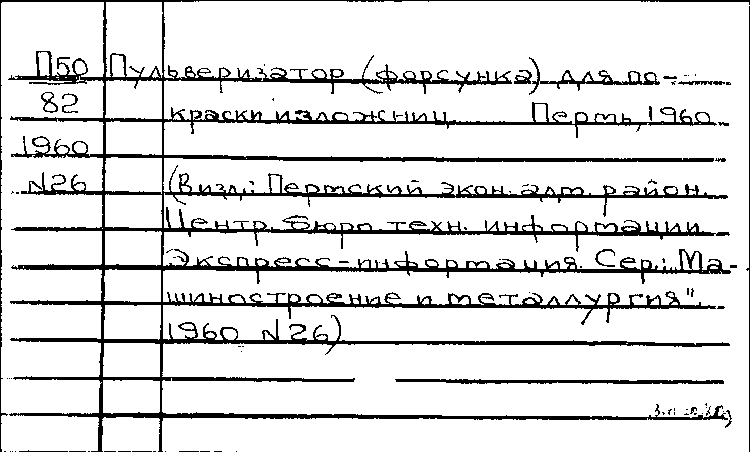 П50 Пульверизатор (форсунка) для по-
82 краски изложниц Пермь, 1960
1960
N26 (В изд.: Пермский экон. адм. район.
Центр. бюро техн. информации
Экспресс-информация. Сер.: Ма-
шиностроение и металлургия".
1960 N26)